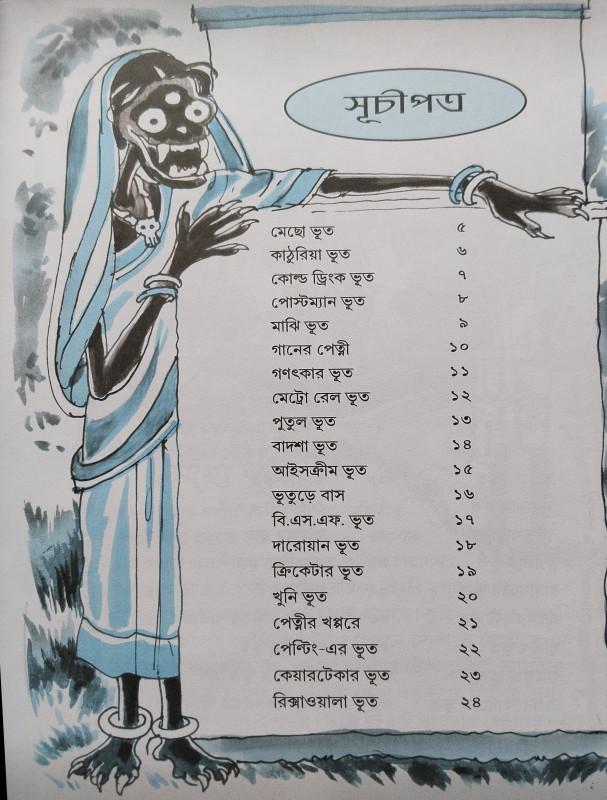 সূচীপত্র
মেছো ভূত ৫
কাঠুরিয়া ভূত ৬
কোল্ড ড্রিংক ভূত ৭
পোস্টম্যান ভূত ৮
মাঝি ভূত ৯
গানের পেত্নী ১০
গণৎকার ভূত ১১
মেট্রো রেল ভূত ১২
পুতুল ভূত ১৩
বাদশা ভূত ১৪
আইসক্রীম ভূত ১৫
ভূতুড়ে বাস ১৬
বি.এস.এফ. ভূত ১৭
দারোয়ান ভূত ১৮
ক্রিকেটার ভূত ১৯
খুনি ভূত ২০
পেত্নীর খপ্পরে ২১
পেণ্টিং-এর ভূত ২২
কেয়ারটেকার ভূত ২৩
রিক্সাওয়ালা ভূত ২৪